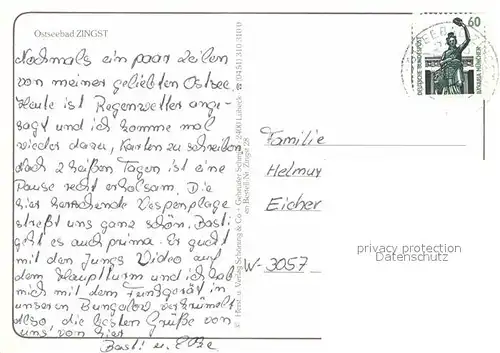 Ostseebad ZINGST
Nochmals ein paar Zeilen
von meiner geliebten Ostsee.
Heute ist Regenwetter ange-
sagt und ich komme mal
wieder dazu, Karten zu schreiben.
Nach 2 heißen Tagen ist eine
Pause recht erholsam. Die
hier herrschende Wespenplage
streßt uns ganz schön. Basti
geht es auch prima. Er guckt
mit den Jungs Video auf
dem Hauptturm und ich hab
mich mit dem Funkgerät in
unseren Bungalow verkrümelt
Also, die besten Grüße von
uns, von hier
Basti u.
Verlag Schöning & Co · Gebrüder Schmidt · 2400 Lübeck
Bestell-Nr. Zingst 28
60
DEUTSCHE BUNDESPOST
BAVARIA MÜNCHEN
Familie
Helmut
Eicher
W-3057
privacy protection
Datenschutz